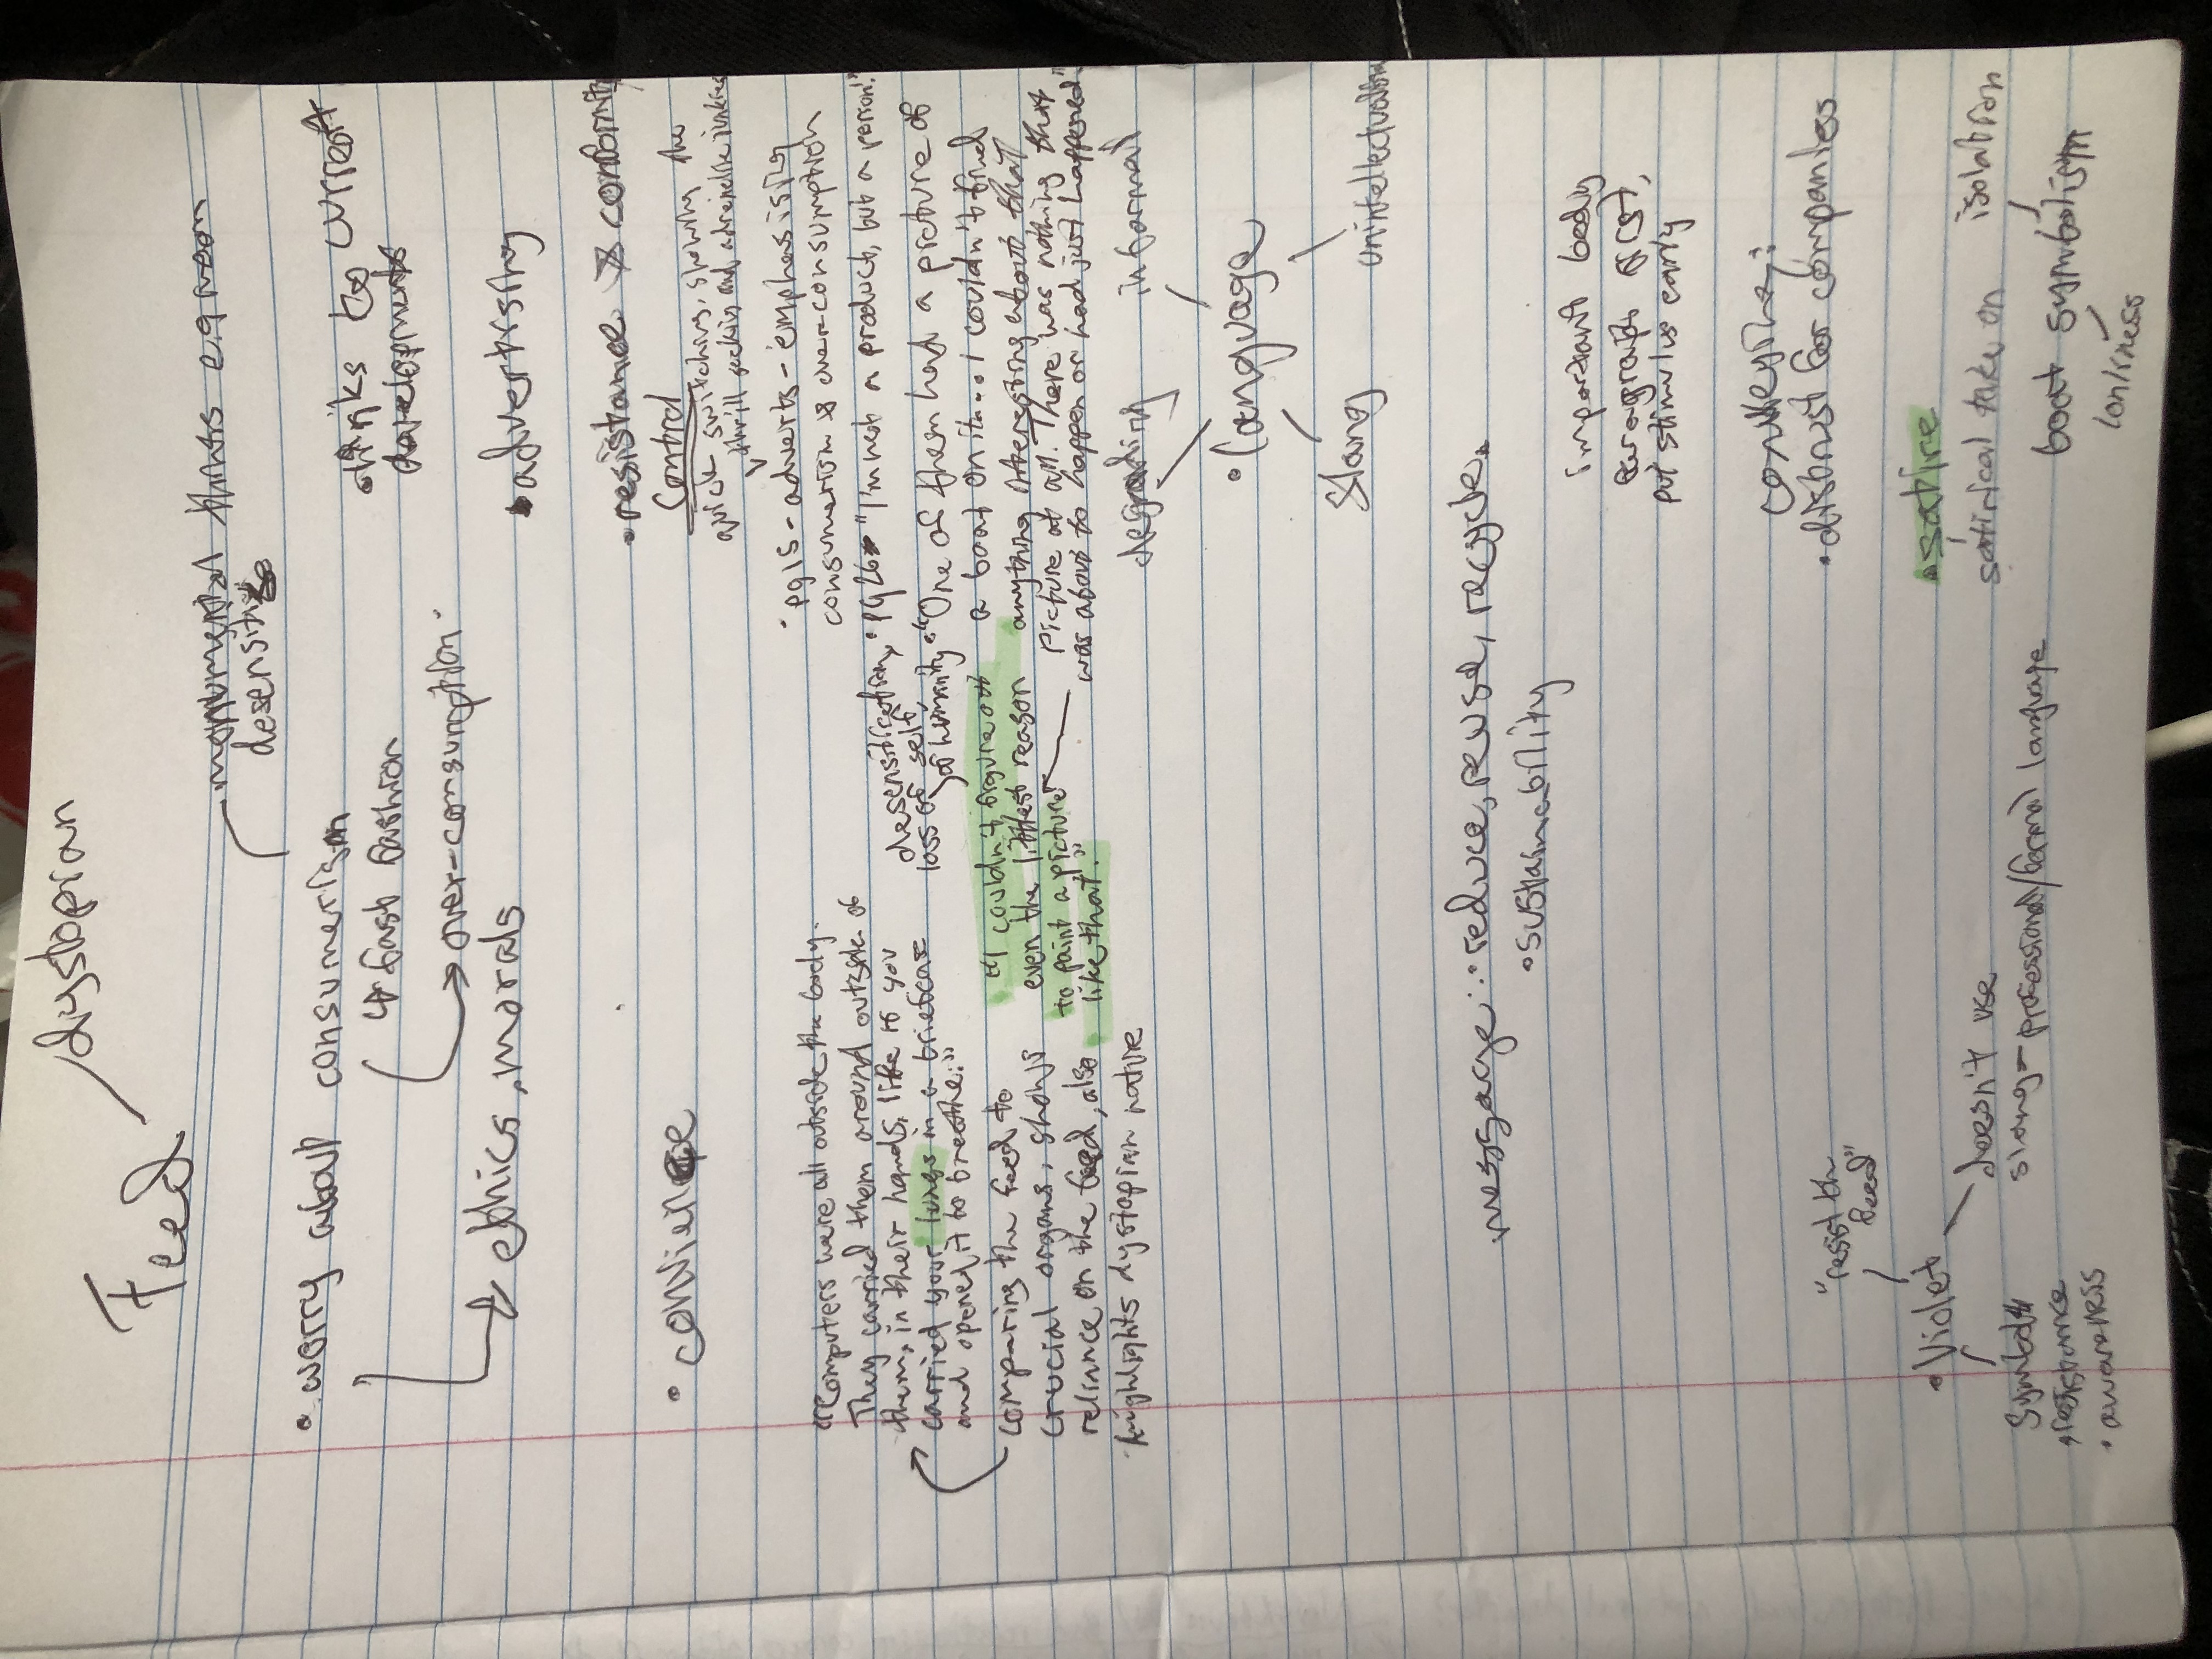 Feed
dystopian
monumental things e.g moon
desensitise
• worry about consumerism
↳ fast fashion
→ over-consumption.
→ ethics, morals
• links to current
developments
• advertising
• resistance & conformity
control
quick switching, showing the
thrill seeking and adrenaline junkies
• convience
• pg15 - adverts - emphersising
consumerism & over-consumption
• pg26 "I'm not a product, but a person."
desensitification,
loss of self,
of humanity
"Computers were all outside the body.
They carried them around outside of
them, in their hands, like if you
carried your lungs in a briefcase
and opened it to breathe."
comparing the feed to
crucial organs, shows
reliance on the feed, also
highlights dystopian nature
• "One of them had a picture of
a boat on it... I couldn't find
anything interesting about that
picture at all. There was nothing that
was about to happen or had just happened."
"I couldn't figure out
even the littlest reason
to paint a picture
like that."
degrading
informal
• language
slang
unintellectual
message: • reduce, reuse, recycle.
• sustainability
important body
paragraph first,
put stimulus early
conveying:
• distrust for companies
"resist the
feed"
• Violet
doesn't use
slang - professional/formal language
symbol
• resistance
• awareness
• satire
satirical take on
isolation
boat symbolism